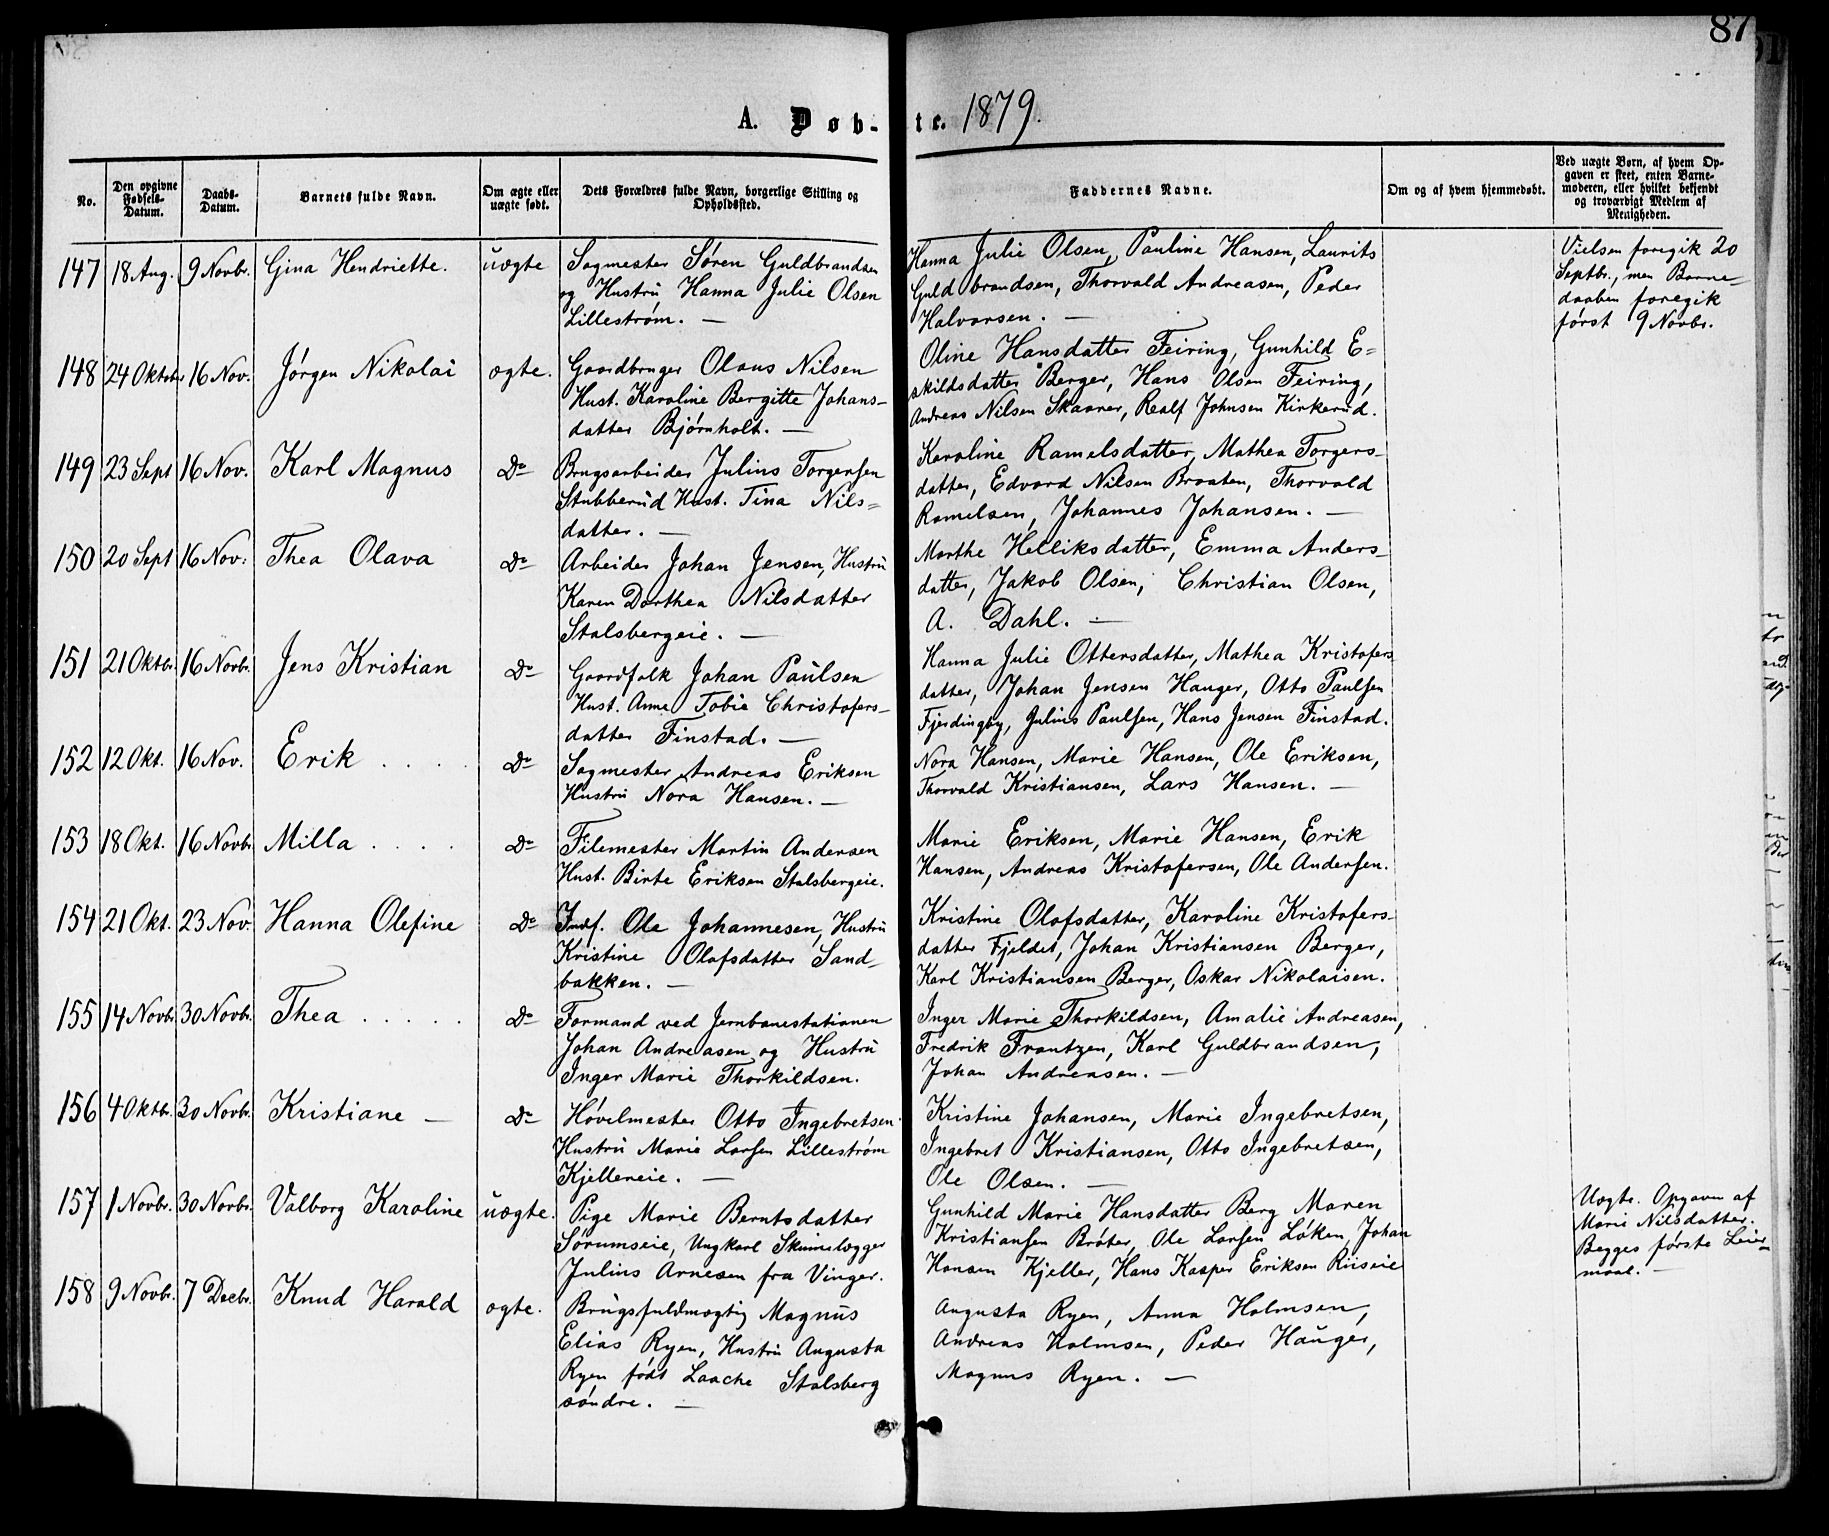 87
A. Døb-te. 1879.
No.
Den opgivne Fødsels-Datum.
Daabs-Datum.
Barnets fulde Navn.
Om ægte eller uægte født.
Dets Forældres fulde Navn, borgerlige Stilling og Opholdssted.
Faddernes Navne.
Om og af hvem hjemmedøbt.
Ved uægte Børn, af hvem Opgaven er skeet, enten Barnemoderen, eller hvilket bekjendt og troværdigt Medlem af Menigheden.
147 18 Aug. 9 Novbr. Gina Hendriette. uægte
Sagmester Søren Guldbrandsen
og Hustru Hanna Julie Olsen
Lillestrøm. —
Hanna Julie Olsen, Pauline Hansen, Laurits
Guldbrandsen, Thorvald Andreasen, Peder
Halvorsen. —
Vielsen foregik 20
Septbr., men Barne-
daaben foregik
først 9 Novbr.
148 24 Oktober 16 Nov. Jørgen Nikolai ægte.
Gaardbruger Olaus Nilsen
Hust. Karoline Bergitte Johans-
datter Bjørnholt. —
Oline Hansdatter Feiring, Gunhild E=
skildsdatter Berger, Hans Olsen Feiring,
Andreas Nilsen Skaarer, Realf Johnsen Kirkerud.
149 23 Sept 16 Nov. Karl Magnus Do
Brugsarbeider Julius Torgersen
Stubberud Hust. Tina Nils=
datter. —
Karoline Ramelsdatter, Mathea Torgers-
datter, Edvard Nilsen Braaten, Thorvald
Ramelsen, Johannes Johansen. —
150 20 Sept 16 Nov. Thea Olava Do
Arbeider Johan Jensen, Hustru
Karen Dorthea Nilsdatter
Stalsbergeie. —
Marthe Helliksdatter, Emma Anders-
datter, Jakob Olsen, Christian Olsen,
A. Dahl. —
151 21 Oktbr. 16 Novbr. Jens Kristian Do
Gaardfolk Johan Paulsen
Hust. Anne Tobie Christofers-
datter Finstad. —
Hanna Julie Ottersdatter, Mathea Kristofers
datter, Johan Jensen Hauger, Otto Paulsen
Fjerdingby, Julius Paulsen, Hans Jensen Finstad.
152 12 Okt. 16 Nov. Erik . . . . Do
Sagmester Andreas Eriksen
Hustru Nora Hansen. —
Nora Hansen, Marie Hansen, Ole Eriksen,
Thorvald Kristiansen, Lars Hansen. —
153 18 Okt. 16 Novbr. Milla . . . . Do
Filemester Martin Andersen
Hust. Birte Eriksen Stalsbergeie.
Marie Eriksen, Marie Hansen, Erik
Hansen, Andreas Kristofersen, Ole Andersen.
154 21 Okt. 23 Nov. Hanna Olefine Do
Indf. Ole Johannesen, Hustru
Kristine Olafsdatter Sand-
bakken. —
Kristine Olafsdatter, Karoline Kristofers-
datter Fjeldet, Johan Kristiansen Berger,
Karl Kristiansen Berger, Oskar Nikolaisen.
155 14 Novbr. 30 Novbr. Thea . . . . . Do
Formand ved Jernbanestationen
Johan Andreasen og Hustru
Inger Marie Thorkildsen.
Inger Marie Thorkildsen, Amalie Andreasen,
Fredrik Frantzen, Karl Guldbrandsen,
Johan Andreasen. —
156 4 Oktbr. 30 Novbr. Kristiane — Do
Høvelmester Otto Ingebretsen
Hustru Marie Larsen Lillestrøm
Kjellereie. —
Kristine Johansen, Marie Ingebretsen,
Ingebret Kristiansen, Otto Ingebretsen,
Ole Olsen. —
157 1 Novbr. 30 Novbr. Valborg Karoline uægte.
Pige Marie Berntsdatter
Sørumseie, Ungkarl Skinnelægger
Julius Arnesen fra Vinger.
Gunhild Marie Hansdatter Berg Maren
Kristiansen Bråter, Ole Larsen Løken, Johan
Hansen Kjeller, Hans Kasper Eriksen Riiseie
Uægte. Opgaven af
Marie Nilsdatter.
Begges første Leier-
maal. —
158 9 Novbr. 7 Decbr. Knud Harald ægte.
Brugsfuldmægtig Magnus
Elias Ryen, Hustru Augusta
Ryen født Laache Stalsberg
søndre. —
Augusta Ryen, Anna Holmsen,
Andreas Holmsen, Peder Hauger,
Magnus Ryen. —